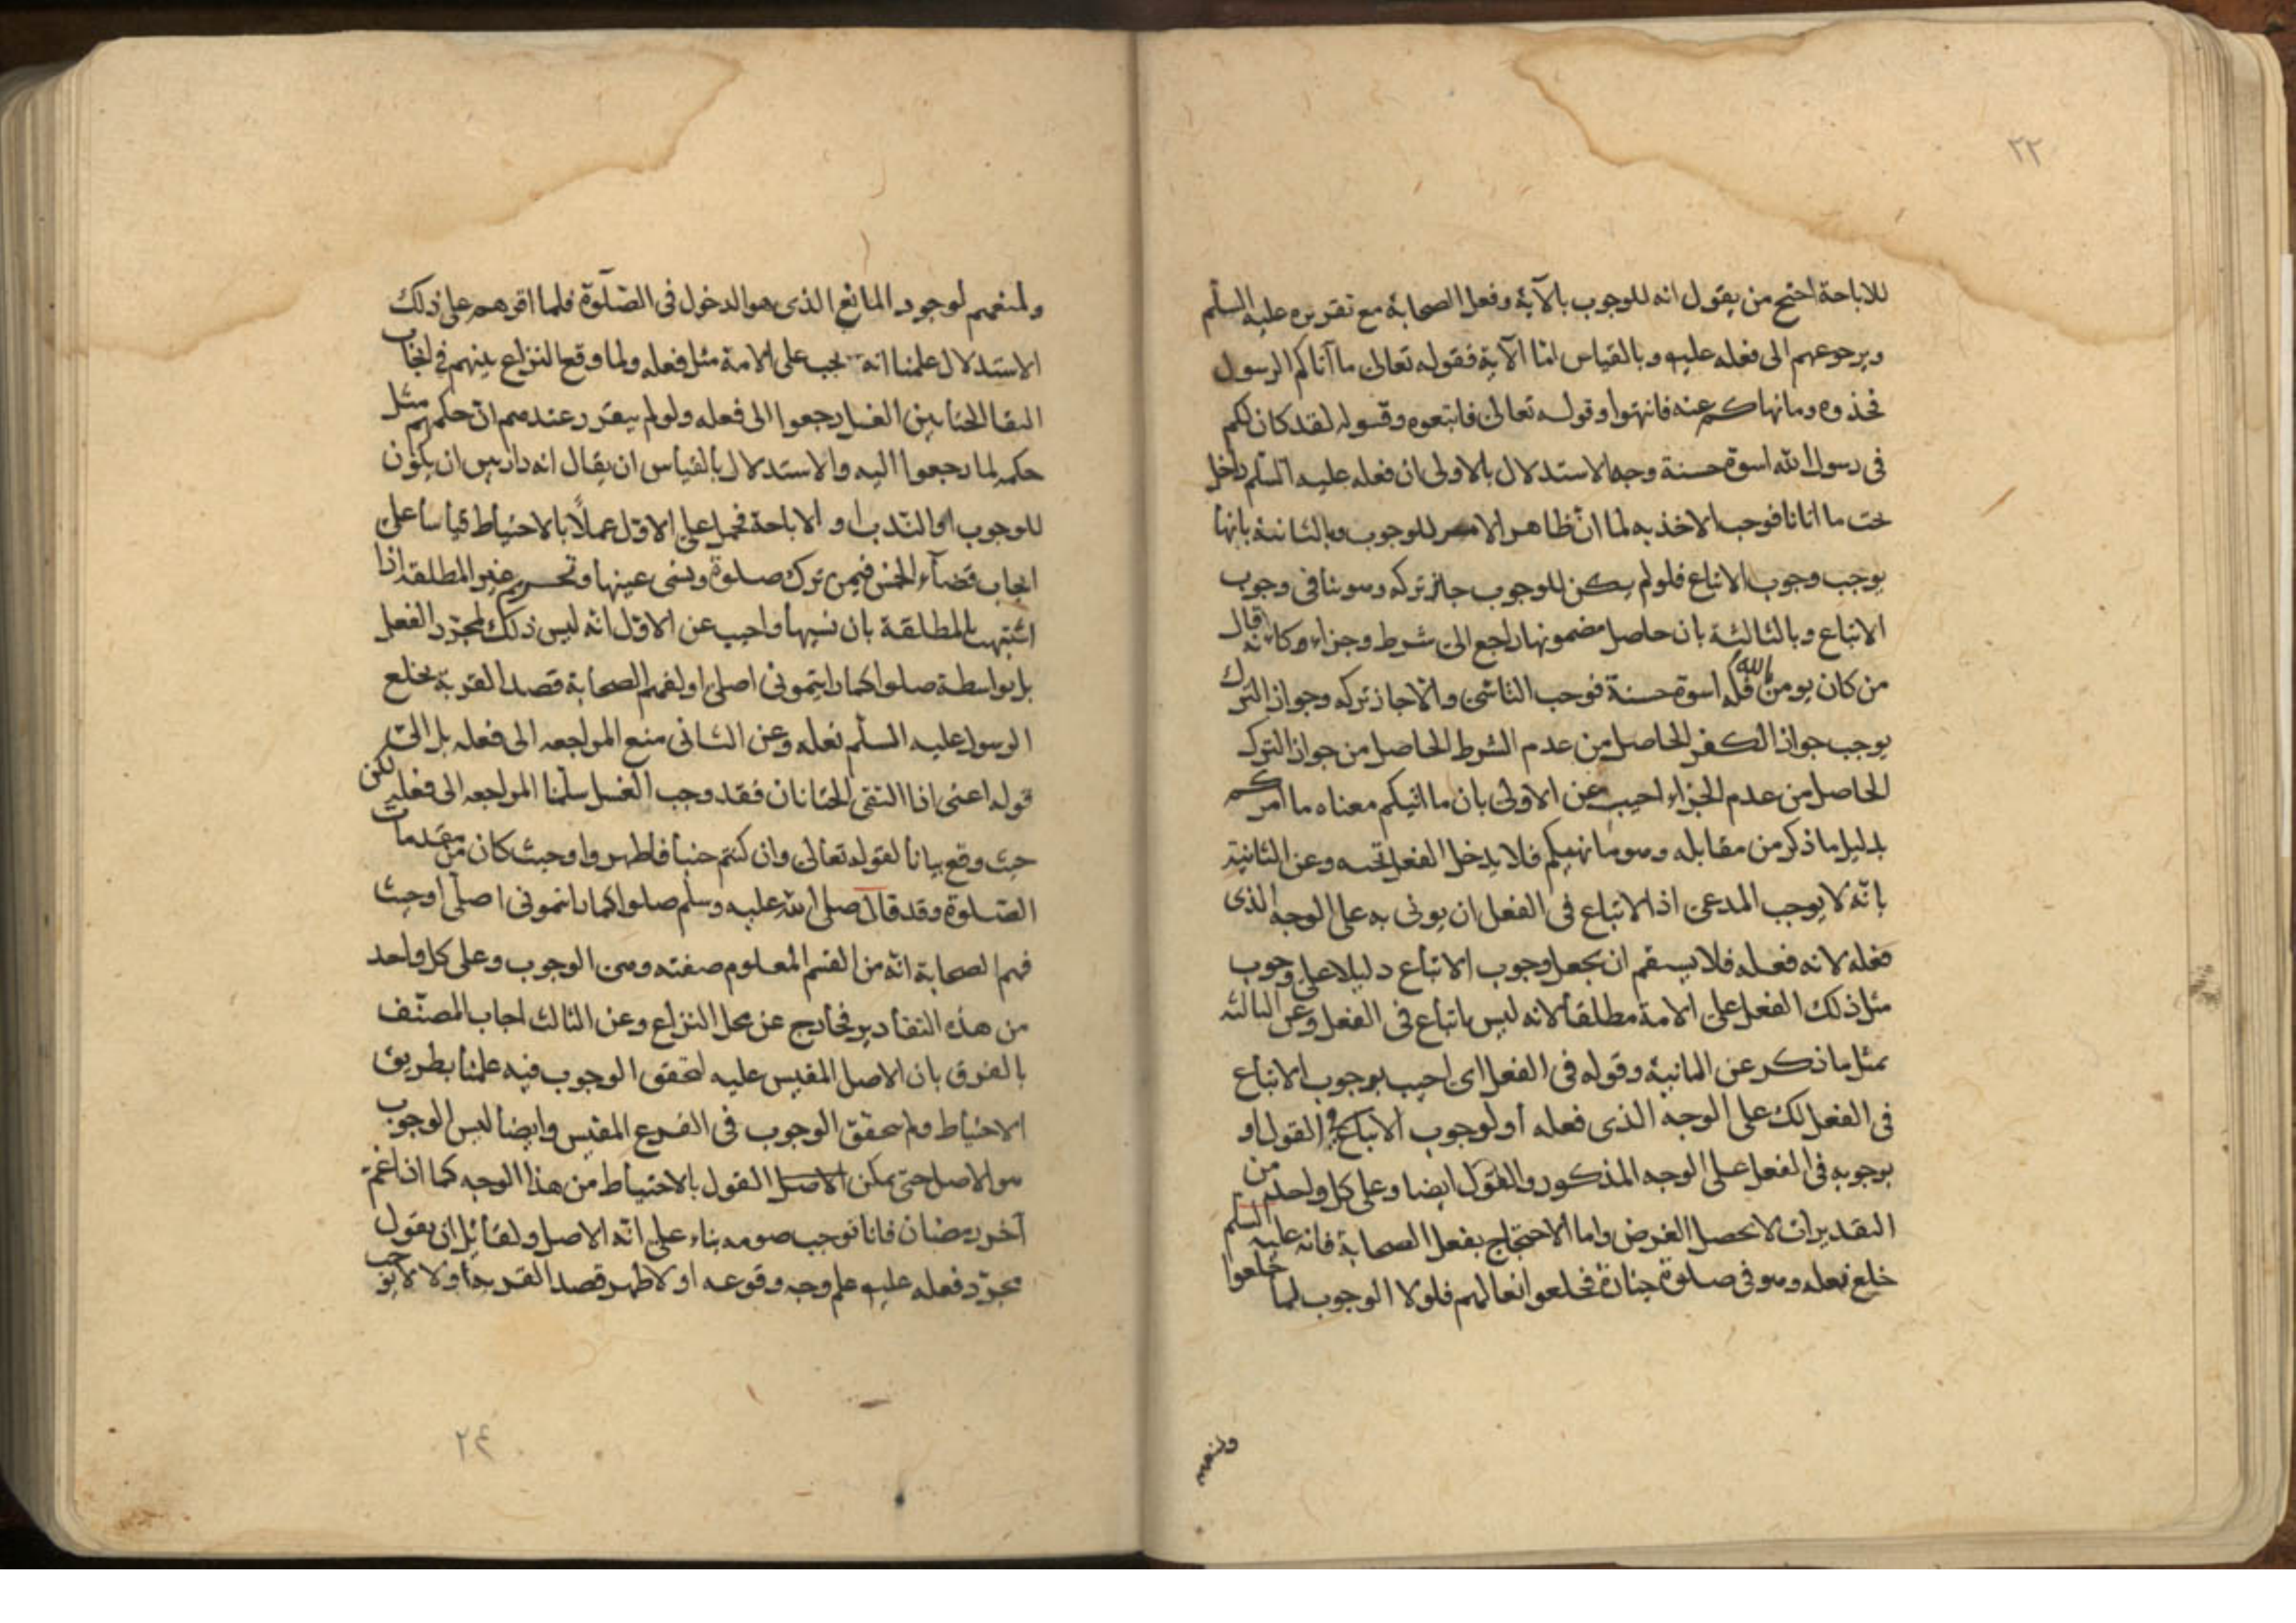 ٢٢
للاباحة احتج من يقول انه للوجوب بالآية وفعل الصحابة مع تقريره عليه السلم
وبرجوعهم الى فعله عليه وبالقياس اما الآية فقوله تعالى ما آتاكم الرسول
فخذوه وما نهاكم عنه فانتهوا وقوله تعالى فاتبعوه وقوله لقد كان لكم
فى رسول الله اسوة حسنة وجه الاستدلال بالاولى ان فعله عليه السلم داخل
تحت ما اتانا فوجب الاخذ به لما ان ظاهر الامر للوجوب وبالثانية بانها
يوجب وجوب الاتباع فلو لم يكن للوجوب جاز تركه وهو ينافى وجوب
الاتباع وبالثالثة بان حاصل مضمونها راجع الى شرط وجزاء وكانه قال
من كان يومن بالله فله اسوة حسنة فوجب التاسى والا جاز تركه وجواز الترك
يوجب جواز الكفر الحاصل من عدم الشرط الحاصل من جواز الترك
الحاصل من عدم الجزاء احيب عن الاولى بان ما اتيكم معناه ما امركم
بدليل ما ذكر من مقابله وهو ما نهيكم فلا يدخل الفعل تحته وعن الثانية
بانه لا يوجب المدعى اذ الاتباع فى الفعل ان يوتى به على الوجه الذى
فعله لانه فعله فلا يستقم ان يجعل وجوب الاتباع دليلا على وجوب
مثل ذلك الفعل على الامة مطلقا لانه ليس باتباع فى الفعل وعن الثالثة
بمثل ما ذكر عن الثانية وقوله فى الفعل اى احيب بوجوب الاتباع
فى الفعل لك على الوجه الذى فعله او لوجوب الاتباع فى القول او
بوجوبه فى الفعل على الوجه المذكور والقول ايضا وعلى كل واحد من
التقديرات لا يحصل الغرض واما الاحتجاج بفعل الصحابة فانه عليه السلم
خلع نعله وهو فى صلوة جنازة فخلعوا نعالهم فلولا الوجوب لما خلعوا
ولمنعهم
ولمنعهم لوجود المانع الذى هو الدخول فى الصلوة فلما اقرهم على ذلك
الاستدلال علمنا انه يجب على الامة مثل فعله ولما وقع النزاع بينهم فى ايجاب
التقا الختانين الغسل رجعوا الى فعله ولو لم يتقرر عندهم ان حكمهم مثل
حكمه لما رجعوا اليه والاستدلال بالقياس ان يقال انه دار بين ان يكون
للوجوب او الندب او الاباحة فحمل على الاول عملا بالاحتياط قياسا على
ايجاب قضاء الخمس فيمن ترك صلوة ونسى عينها وتحريم غير المطلقة اذا
اشتبهت بالمطلقة بان نسيها واحيب عن الاول انه ليس ذلك لمجرد الفعل
بل بواسطة صلوا كما رايتمونى اصلى او لفهم الصحابة قصد القربة بخلع
الرسول عليه السلم نعله وعن الثانى منع المراجعه الى فعله بل الى
قوله اعنى اذا التقى الختانان فقد وجب الغسل سلمنا المراجعه الى فعله لكن
حيث وقع بيانا لقوله تعالى وان كنتم جنبا فاطهروا وحيث كان من مقدمات
الصلوة وقد قال صلى الله عليه وسلم صلوا كما رايتمونى اصلى او حيث
فهم الصحابة انه من القسم المعلوم صفته وهى الوجوب وعلى كل واحد
من هذه التقادير فخارج عن محل النزاع وعن الثالث اجاب المصنف
بالفرق بان الاصل المقيس عليه لتحقق الوجوب فيه علمنا بطريق
الاحتياط ولم يتحقق الوجوب فى الفرع المقيس وايضا ليس الوجوب
هو الاصل حتى يمكن الاصل القول بالاحتياط من هذا الوجه كما اذا غم
آخر رمضان فانا نوجب صومه بناء على انه الاصل ولقائل ان يقول
مجرد فعله عليه علم وجه وقوعه او لا ظهر قصد القربة او لا لا يوجب
٢٤